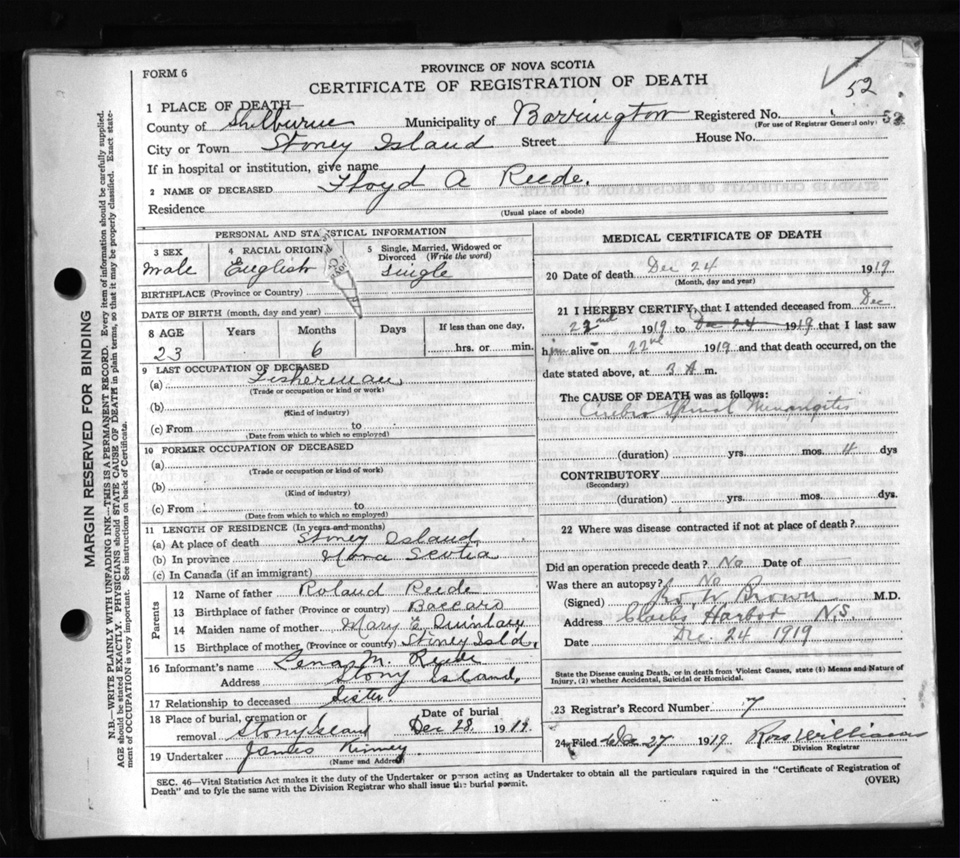 52
FORM 6
PROVINCE OF NOVA SCOTIA
CERTIFICATE OF REGISTRATION OF DEATH
1 PLACE OF DEATH
County of Shelburne Municipality of Barrington Registered No. 52
(For use of Registrar General only)
City or Town Stoney Island Street House No.
If in hospital or institution, give name
2 NAME OF DECEASED Floyd A Reede.
Residence
(Usual place of abode)
PERSONAL AND STATISTICAL INFORMATION
3 SEX 4 RACIAL ORIGIN 5 Single, Married, Widowed or Divorced (Write the word)
male English single
BIRTHPLACE (Province or Country)
DATE OF BIRTH (month, day and year)
8 AGE Years Months Days If less than one day,
23 6 hrs. or min.
9 LAST OCCUPATION OF DECEASED
(a) Fisherman
(Trade or occupation or kind or work)
(b)
(Kind of industry)
(c) From to
(Date from which to which so employed)
10 FORMER OCCUPATION OF DECEASED
(a)
(Trade or occupation or kind of work)
(b)
(Kind of industry)
(c) From to
(Date from which to which so employed)
11 LENGTH OF RESIDENCE (In years and months)
(a) At place of death Stoney Island
(b) In province Nova Scotia
(c) In Canada (if an immigrant)
Parents
12 Name of father Roland Reede
13 Birthplace of father (Province or country) Baccaro
14 Maiden name of mother Mary E Quinlan
15 Birthplace of mother (Province or country) Stoney Isld.
16 Informant's name Lena M. Reede
Address Stony Island,
17 Relationship to deceased Sister
18 Place of burial, cremation or removal Stony Island Date of burial Dec 28 1919.
19 Undertaker James Nickerson
(Name and Address)
MEDICAL CERTIFICATE OF DEATH
20 Date of death Dec 24 1919
(Month, day and year)
21 I HEREBY CERTIFY, that I attended deceased from Dec
22nd 1919 to Dec 24 1919 that I last saw
him alive on 22nd 1919 and that death occurred, on the
date stated above, at 3 A m.
The CAUSE OF DEATH was as follows:
Cerebro Spinal Menangitis
(duration) yrs. mos. 4 dys
CONTRIBUTORY
(Secondary)
(duration) yrs. mos. dys.
22 Where was disease contracted if not at place of death?
Did an operation precede death? No Date of
Was there an autopsy? No
(Signed) W Brown M.D.
Address Clarks Harbor N.S.
Date Dec. 24 1919
State the Disease causing Death, or in death from Violent Causes, state (1) Means and Nature of
Injury, (2) whether Accidental, Suicidal or Homicidal.
23 Registrar's Record Number 7
24 Filed Dec 27 1919 Ross Williams
Division Registrar
SEC. 46—Vital Statistics Act makes it the duty of the Undertaker or person acting as Undertaker to obtain all the particulars required in the "Certificate of Registration of
Death" and to fyle the same with the Division Registrar who shall issue the burial permit.
(OVER)
MARGIN RESERVED FOR BINDING
N.B.—WRITE PLAINLY WITH UNFADING INK—THIS IS A PERMANENT RECORD. Every item of information should be carefully supplied.
AGE should be stated EXACTLY. PHYSICIANS should STATE CAUSE OF DEATH in plain terms, so that it may be properly classified. Exact state-
ment of OCCUPATION is very important. See instructions on back of Certificate.